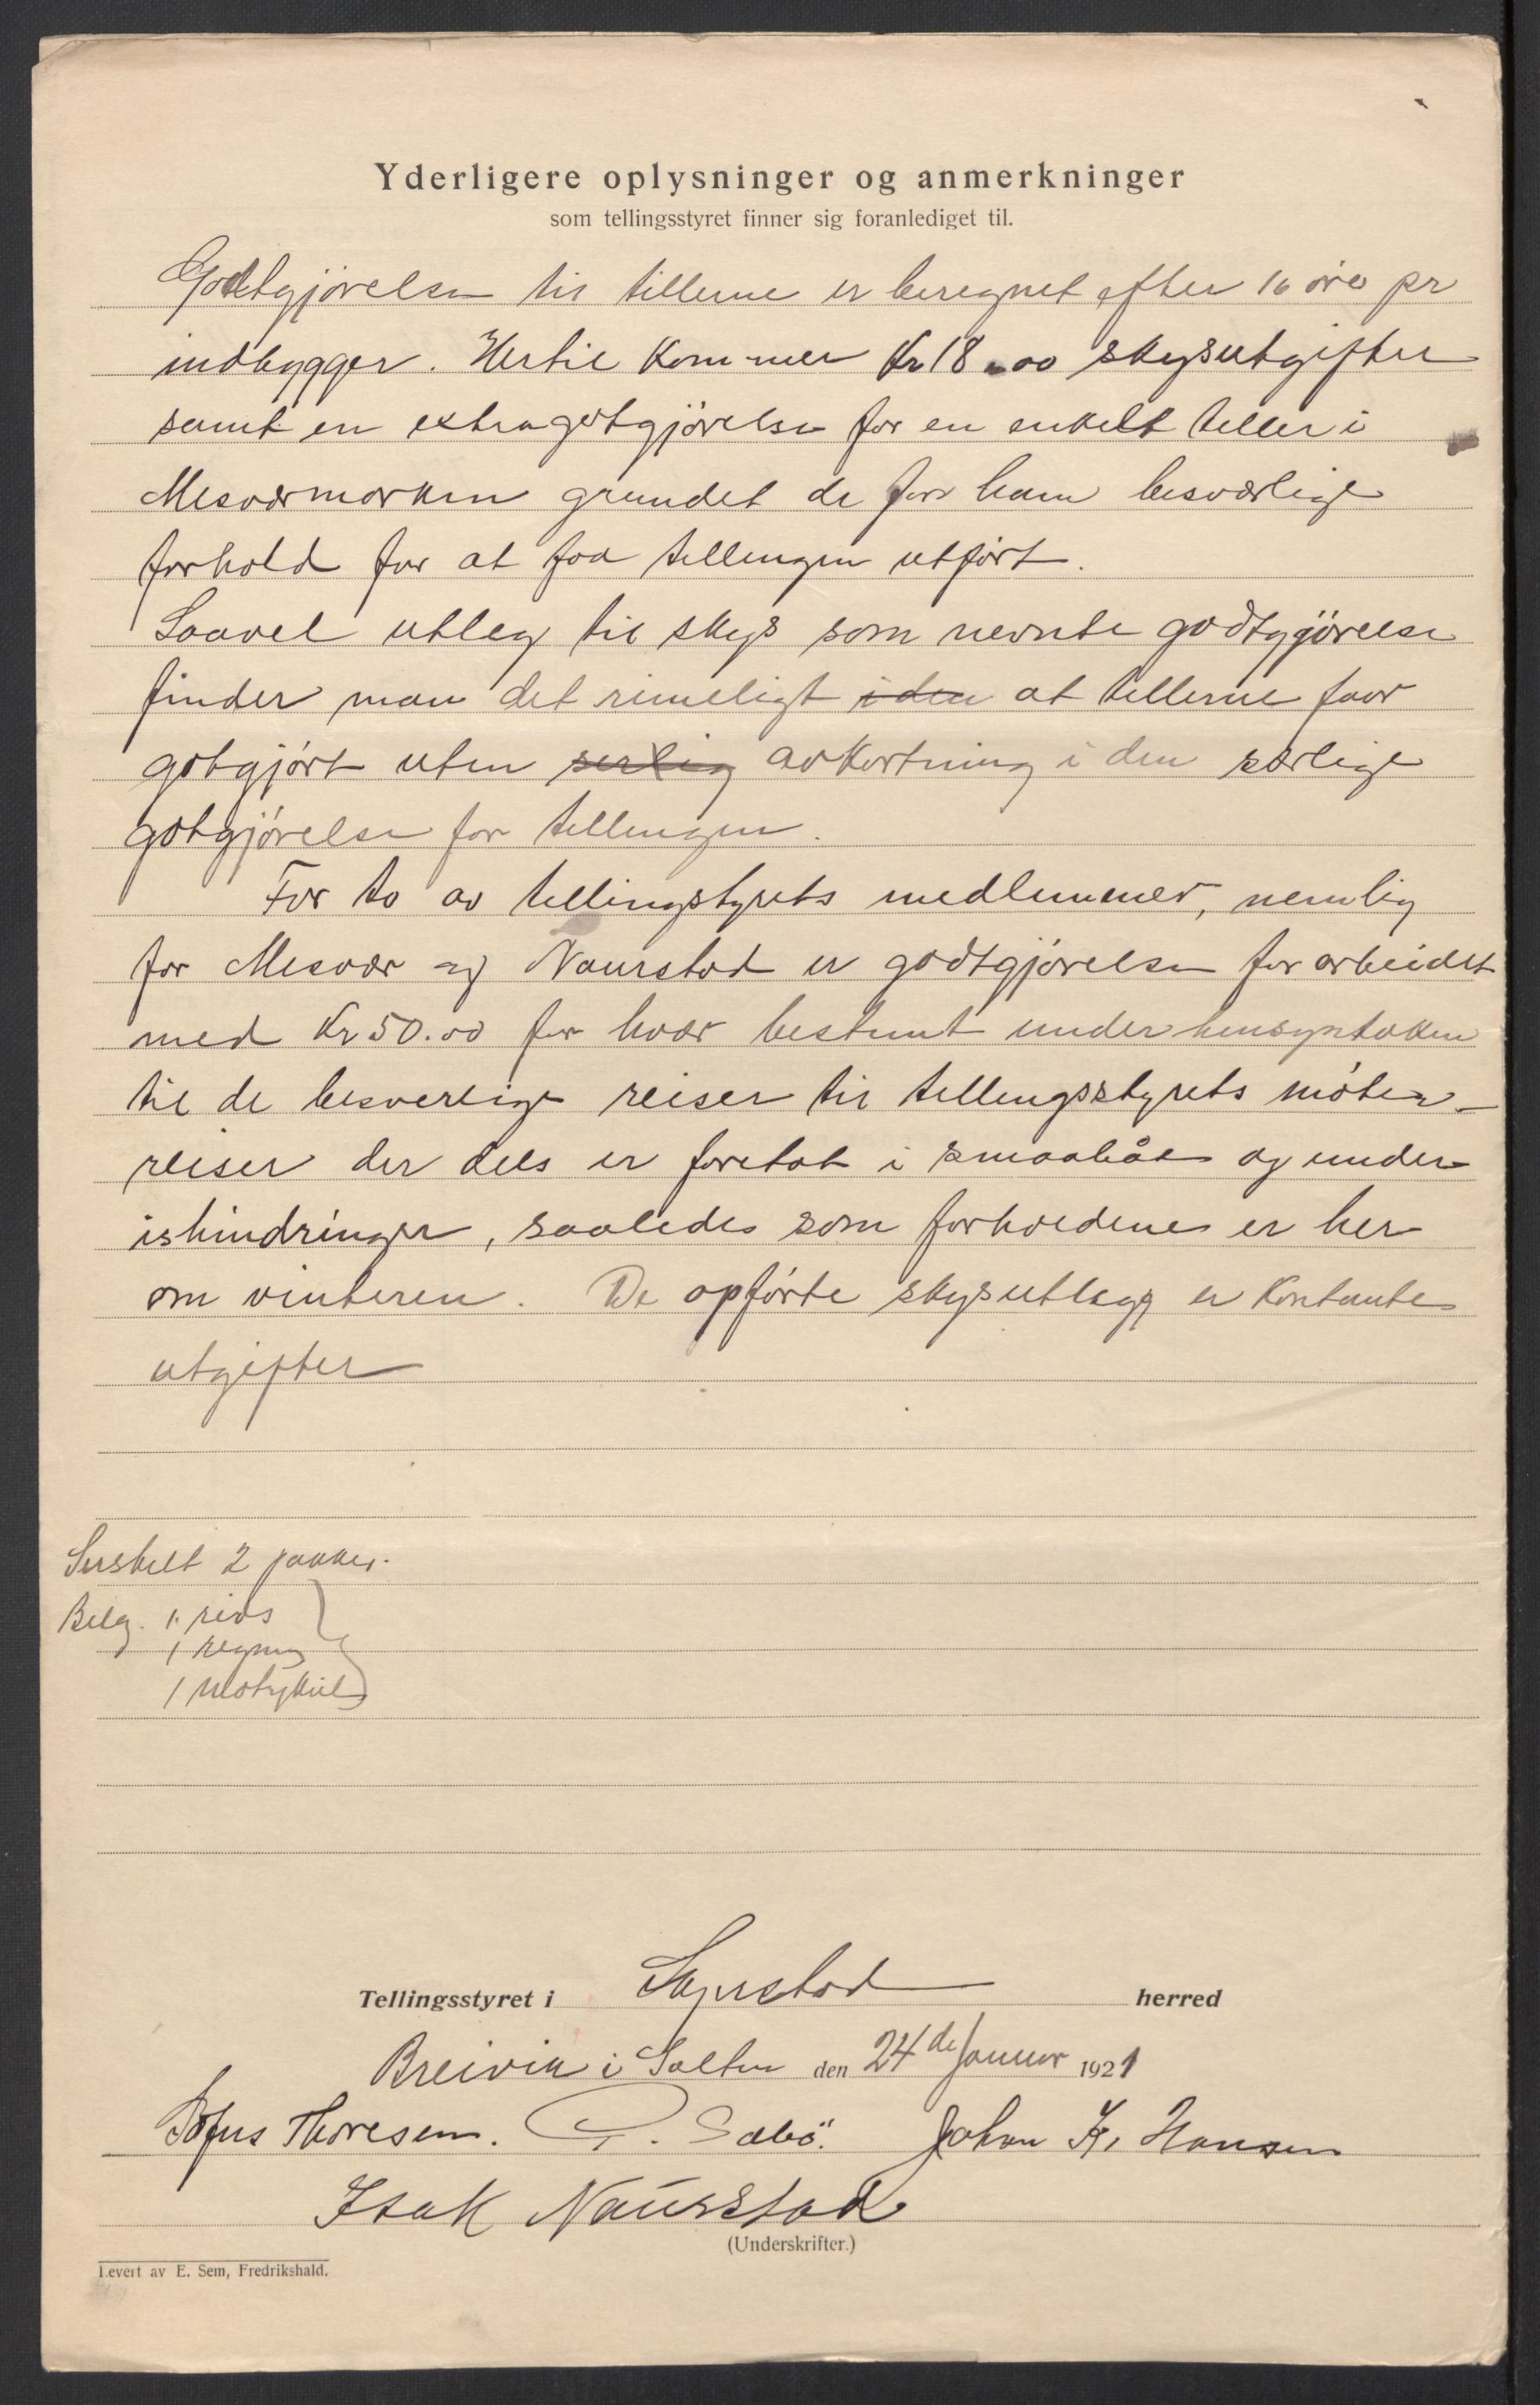 Yderligere oplysninger og anmerkninger
som tellingsstyret finner sig foranlediget til.
Godtgjørelsen til tellerne er beregnet efter 16 øre pr
indbygger. Hertil kommer Kr 18.00 skysutgifter
samt en extragotgjørelse for en enkelt teller i
Misværmarken grundet de for ham besværlige
forhold for at faa tellingen utført.
Saavel utleg til skys som nevnte godtgjørelse
finder man det rimeligt iden at tellerne faar
gotgjørt uten serlig avkortning i den særlige
gotgjørelse for tellingen.
For to av tellingstyrets medlemmer, nemlig
for Misvær og Naurstad er godtgjørelsen for arbeidet
med Kr 50.00 for hvær bestemt under hensyntaken
til de besverlige reiser til tellingsstyrets møter –
reiser der dels er foretat i smaabåt og under
ishindringer, saaledes som forholdene er her
om vinteren. De opførte skysutlegg er kontante
utgifter
Særskilt 2 pakker.
Bilag. 1 rids
1 regning
1
Tellingsstyret i Skjerstad herred
Breivik i Salten den 24de Januar 1921
Sofus Thoresen. P. Sæbö. Johan K. Hansen
Isak Naurstad
(Underskrifter.)
Levert av E. Sem, Fredrikshald.